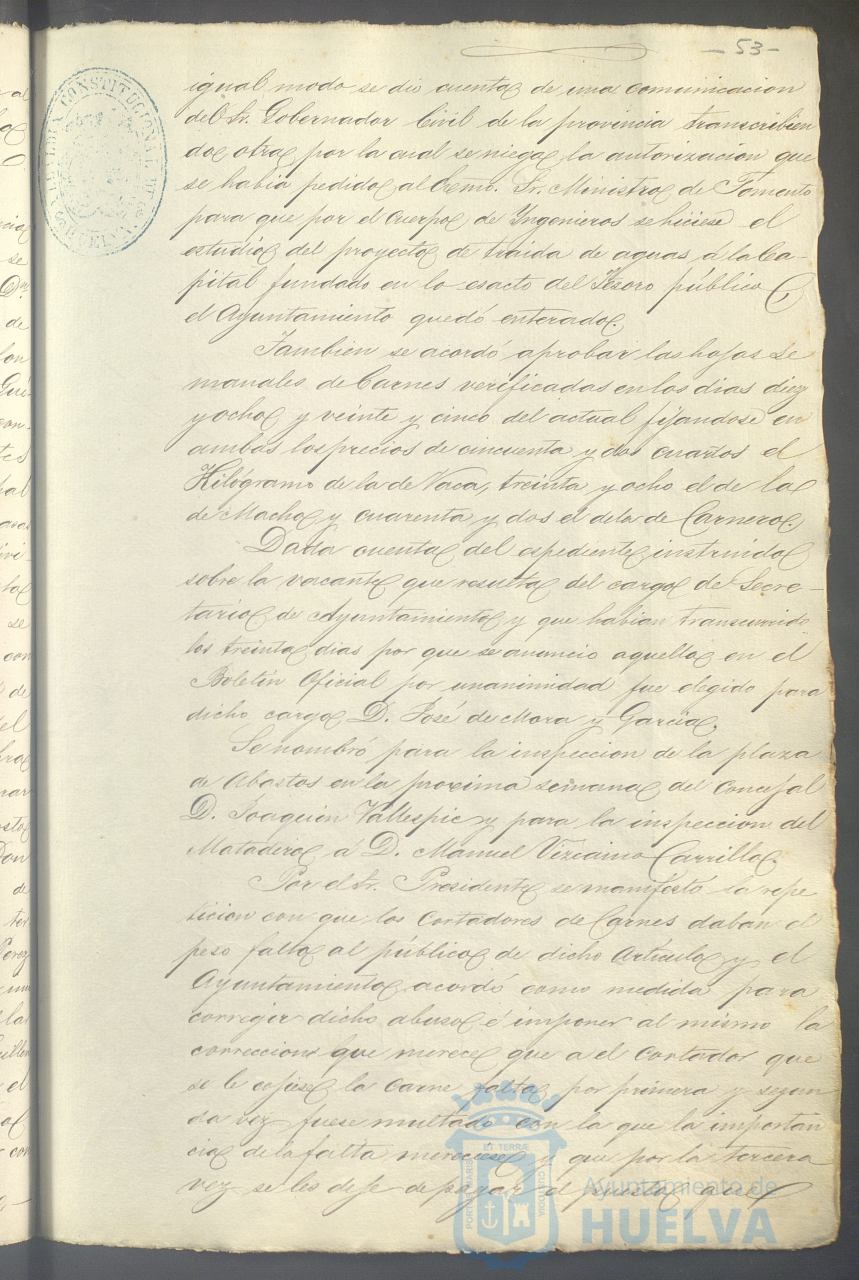 — 53 —
igual modo se dió cuenta de una comunicacion
del Sr. Gobernador Civil de la provincia transcribien
do otra por la cual se niega la autorizacion que
se habia pedido al Excmo. Sr. Ministro de Fomento
para que por el Cuerpo de Yngenieros se hiciese el
estudio del proyecto de traida de aguas á la Ca-
pital fundado en lo esacto del Tesoro público y
el Ayuntamiento quedó enterado.
Tambien se acordó aprobar las hojas se
manales de Carnes verificadas en los dias diez
y ocho y veinte y cinco del actual fijandose en
ambas los precios de cincuenta y dos cuartos el
Kilógramo de la de Vaca, treinta y ocho el de la
de Macho y cuarenta y dos el de la de Carnero.
Dada cuenta del espediente instruido
sobre la vacante que resulta del cargo de Secre-
tario de Ayuntamiento y que habian transcurrido
los treinta dias por que se anuncio aquella en el
Boletin Oficial por unanimidad fue elegido para
dicho cargo D. José de Mora y Garcia.
Se nombró para la inspeccion de la plaza
de Abastos en la proxima semana del Concejal
D. Joaquin Vallespic y para la inspeccion del
Matadero á D. Manuel Vizcaino Carrillo.
Por el Sr. Presidente se manifestó la repe
ticion con que los Cortadores de Carnes daban el
peso falto al público de dicho Articulo y el
Ayuntamiento acordó como medida para
corregir dicho abuso é imponer al mismo la
correccion que merece que a el Cortador que
se le cojiese la carne falta por primera y segun
da vez fuese multado con la que la importan
cia de la falta mereciese y que por la tercera
vez se les deje de pagar el puesto que
ALCALDIA CONSTITUCIONAL
HUELVA
PORTUS MARIS ET TERRÆ CUSTODIA
Ayuntamiento de
HUELVA